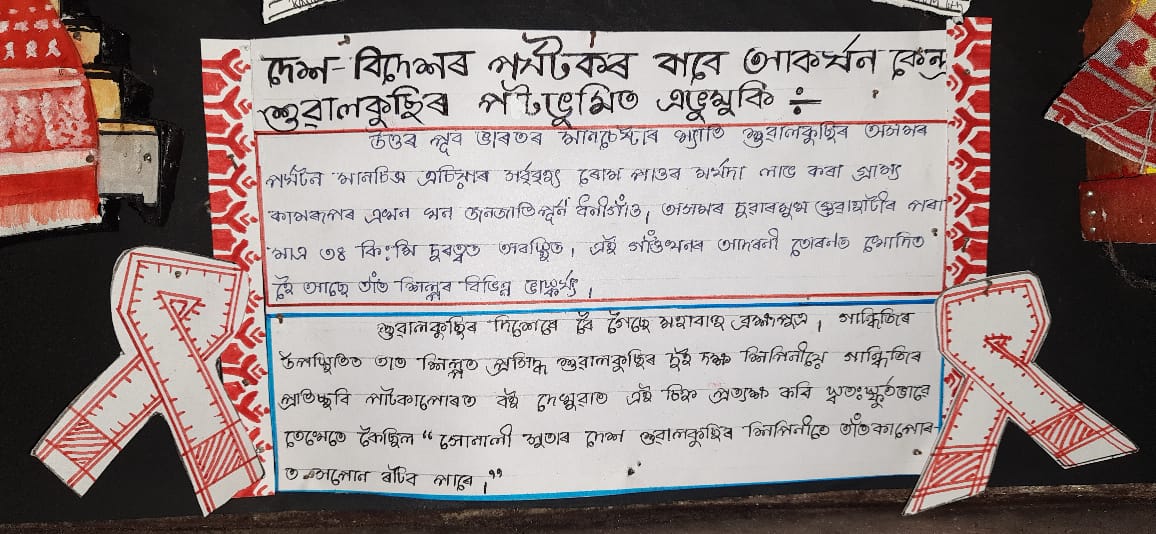 দেশ-বিদেশৰ পৰ্যটকৰ বাবে আকৰ্ষন কেন্দ্ৰ
শুৱালকুছিৰ পটভূমিত এভুমুকি ÷
উত্তৰ পূব ভাৰতৰ মানচেষ্টাৰ খ্যাত শুৱালকুছিৰ অসমৰ
পৰ্যটন মানচিত্ৰ এচিয়াৰ সৰ্ববৃহৎ ৰেচম গাওৰ মৰ্যদা লাভ কৰা গ্ৰাম্য
কামৰূপৰ এখন ঘন জনজাতিপূৰ্ন ধনীগাঁও, অসমৰ দুৱাৰমুখ গুৱাহাটীৰ পৰা
মাত্ৰ ৩৪ কি:মি দুৰত্বত অৱস্থিত, এই গাঁওখনৰ আদৰনী তোৰনত খোদিত
হৈ আছে তাঁত শিল্পৰ বিভিন্ন ভাস্কৰ্য্য,
শুৱালকুছিৰ দিশেৰে বৈ গৈছে মহাবাহু ব্ৰহ্মপুত্ৰ, গান্ধিজিৰে
উপস্থিতিত তাত শিল্পত প্ৰসিদ্ধ শুৱালকুছিৰ দুই দক্ষ শিপিনীয়ে গান্ধিজিৰ
প্ৰতিচ্ছবি পাটকাপোৰত বই দেখুৱাত এই চিত্ৰ প্ৰত্যক্ষ কৰি স্বতঃস্ফুৰ্তভাৱে
তেখেতে কৈছিল “সোনালী সুতাৰ দেশ শুৱালকুছিৰ শিপিনীতে তাঁতকাপোৰ-
ত সপোন ৰচিব পাৰে,”